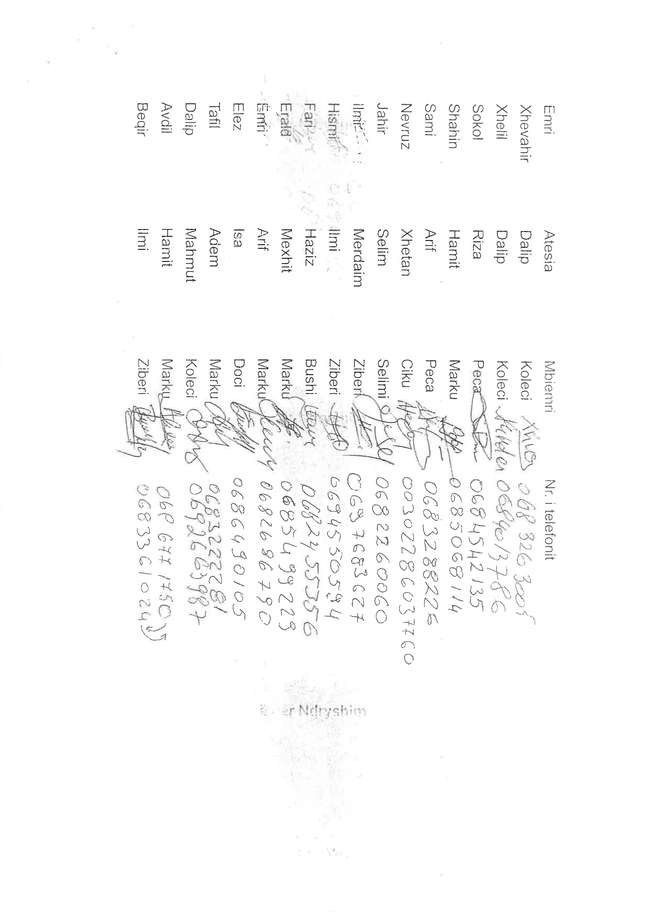 Emri Atesia Mbiemri Nr. i telefonit
Xhevahir Dalip Koleci
Xhelil Dalip Koleci 0684013786
Sokol Riza Peca 0684542135
Shahin Hamit Marku 0685068114
Sami Arif Peca 0683288226
Nevruz Xhetan Ciku 00302286037760
Jahir Selim Selimi 0682260060
Ilmi Merdaim Ziberi 0697683627
Hismi Ilmi Ziberi 0694550594
Haziz Bushi 0682455356
Erald Mexhit Marku 0685499229
Emri Arif Marku 0682686790
Elez Isa Doci 0686490105
Tafil Adem Marku 0683222281
Dalip Mahmut Koleci 0692663987
Avdil Hamit Marku 068 677 1750
Beqir Ilmi Ziberi 0683361024
Ndryshim